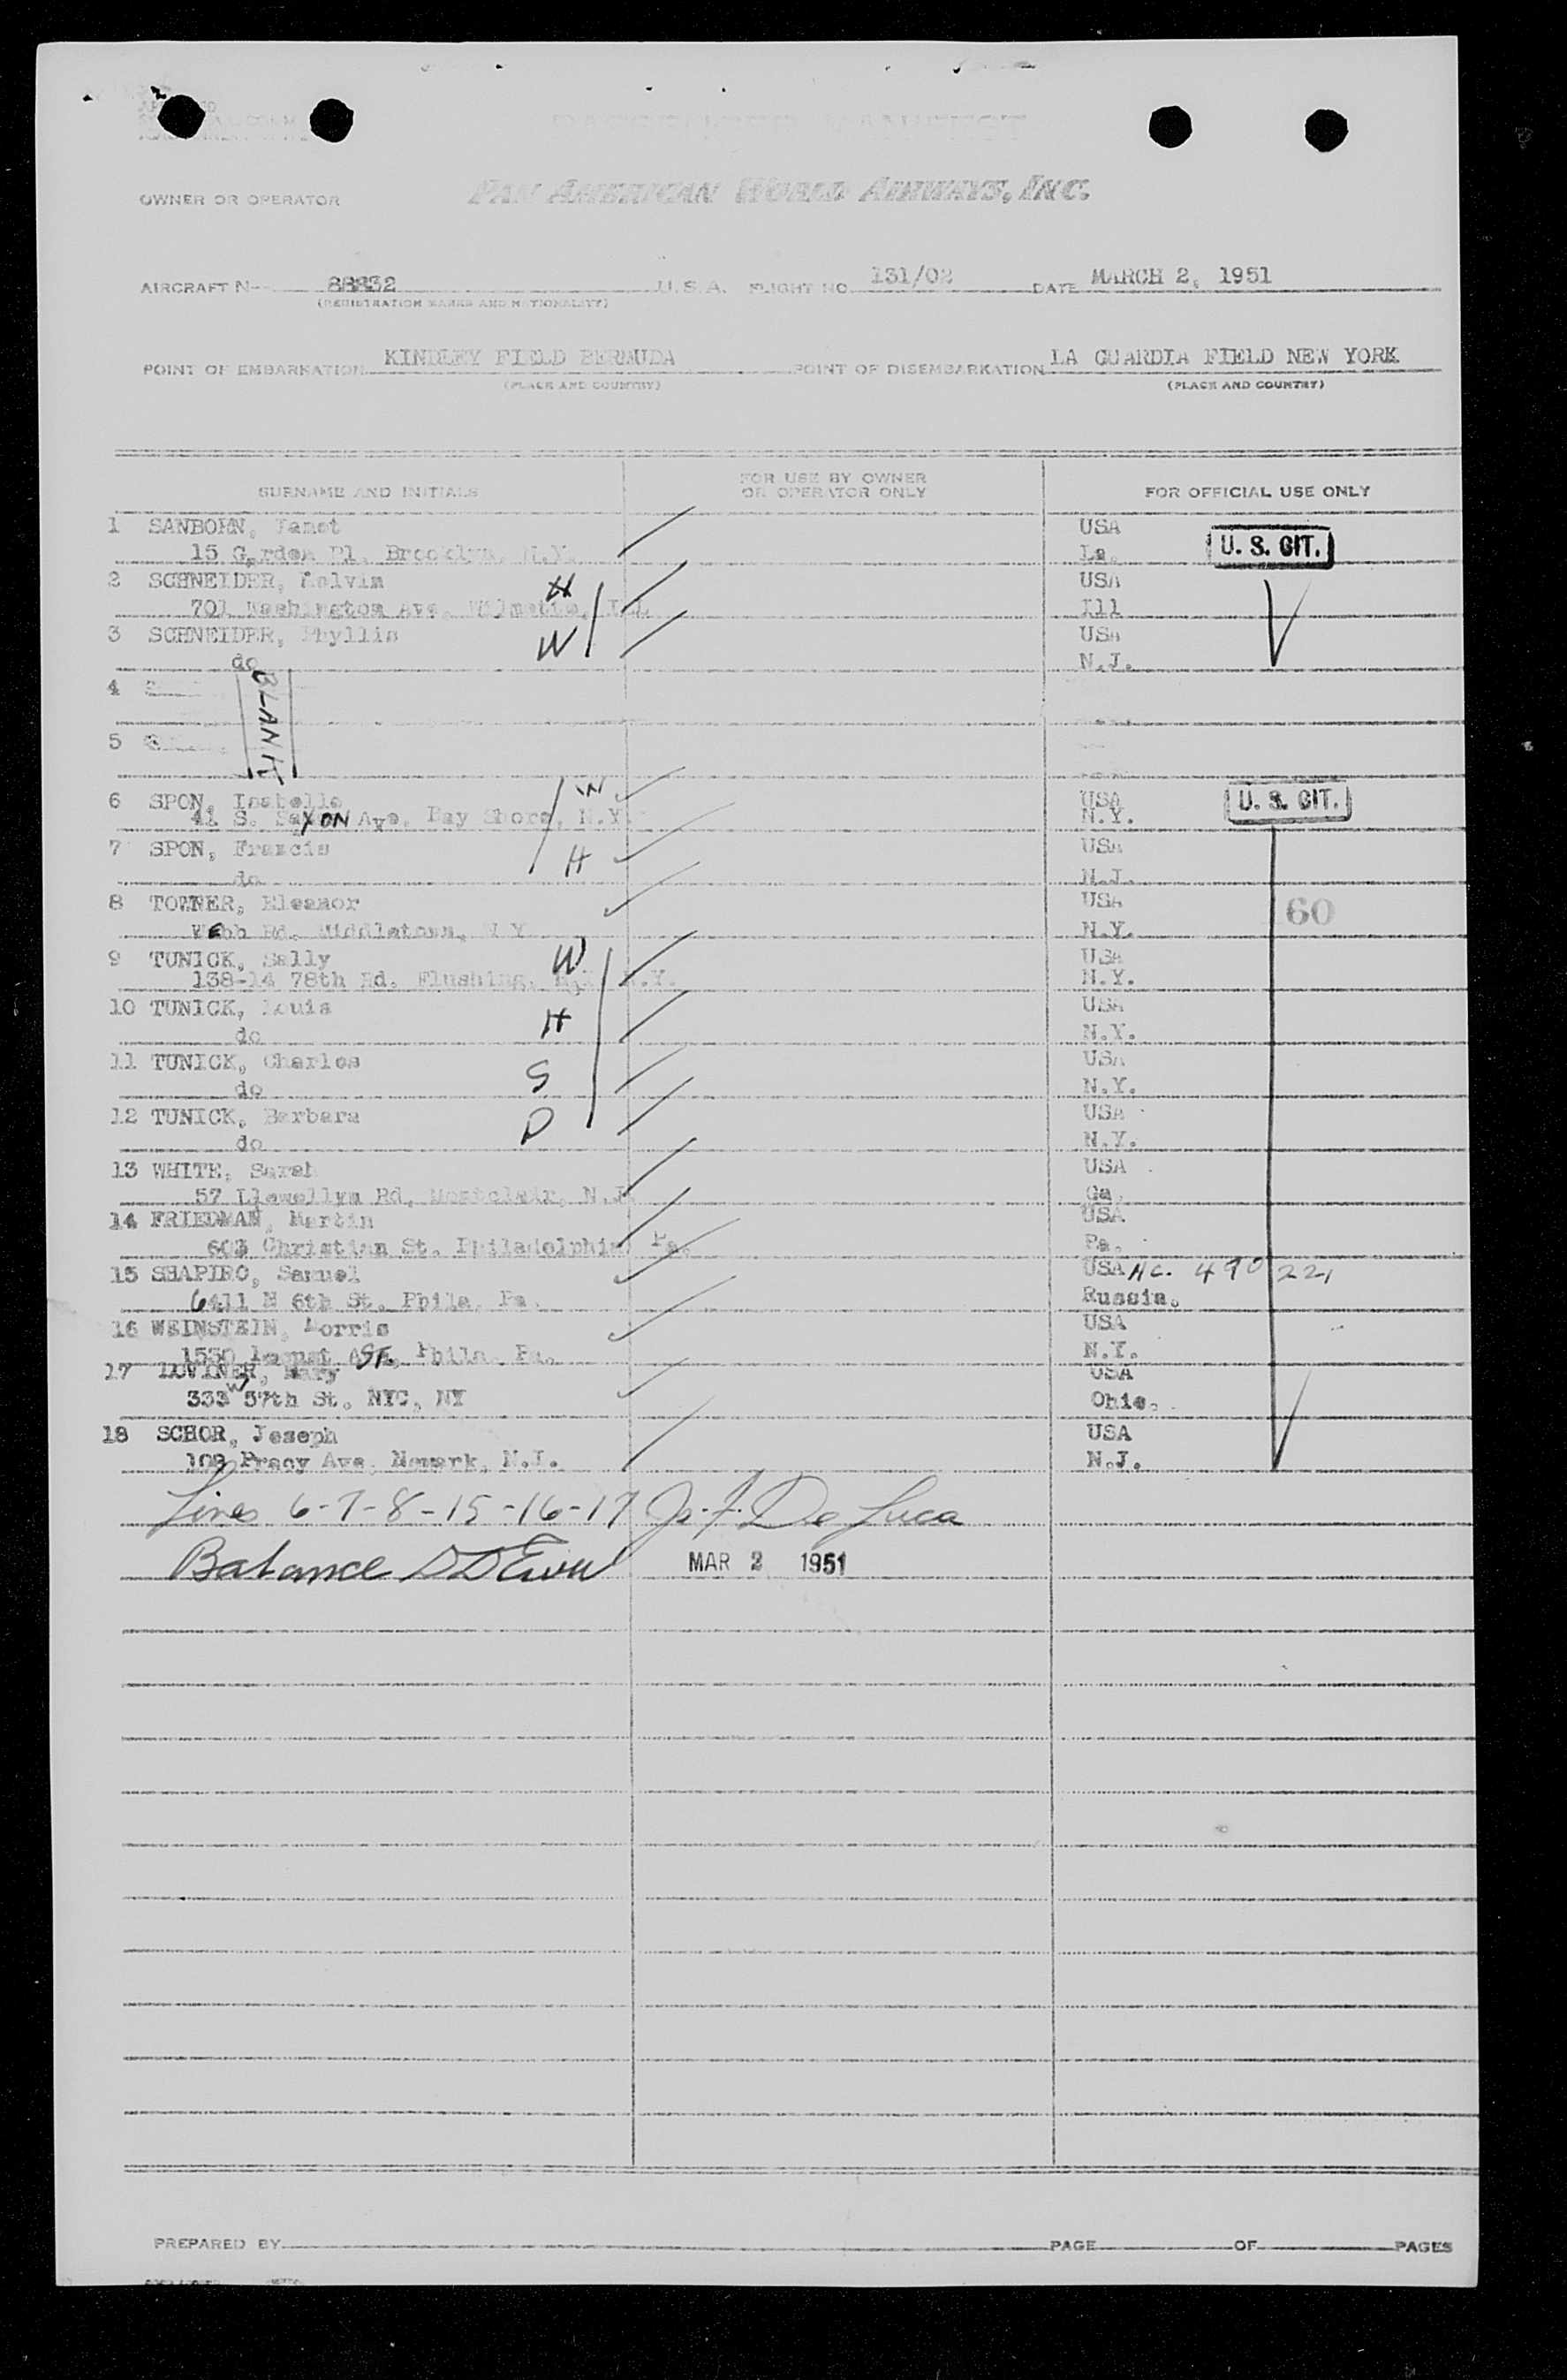 PASSENGER MANIFEST
OWNER OR OPERATOR PAN AMERICAN WORLD AIRWAYS, INC.
AIRCRAFT N- 88832 U.S.A. FLIGHT NO. 131/02 DATE MARCH 2, 1951
(REGISTRATION MARKS AND NATIONALITY)
POINT OF EMBARKATION KINDLEY FIELD BERMUDA POINT OF DISEMBARKATION LA GUARDIA FIELD NEW YORK
(PLACE AND COUNTRY) (PLACE AND COUNTRY)
SURNAME AND INITIALS FOR USE BY OWNER OR OPERATOR ONLY FOR OFFICIAL USE ONLY
1 SANBORN, Janet USA
15 Garden Pl. Brooklyn, N.Y. La. U. S. CIT.
2 SCHNEIDER, Melvin H USA
701 Washington Ave. Wilmette, Ill Ill
3 SCHNEIDER, Phyllis W USA
do N.J.
4 BLANK
5
6 SPON, Isabelle W USA U. S. CIT.
41 S. SaXON Ave. Bay Shore, N.Y. N.Y.
7 SPON, Francis H USA
do N.J.
8 TOWNER, Eleanor USA 60
Webb Rd. Middletown, N Y N.Y.
9 TUNICK, Sally W USA
138-14 78th Rd. Flushing, N.Y. N.Y.
10 TUNICK, Louis H USA
do N.Y.
11 TUNICK, Charles S USA
do N.Y.
12 TUNICK, Barbara D USA
do N.Y.
13 WHITE, Sarah USA
57 Llewellyn Rd, Montclair, N.J. Ga.
14 FRIEDMAN, Martin USA
603 Christian St. Philadelphia, Pa. Pa.
15 SHAPIRO, Samuel USA NC. 490221
6411 N 6th St. Phila. Pa. Russia.
16 WEINSTEIN, Morris USA
1530 Locust ST. Phila. Pa. N.Y.
17 LOVINER, Mary USA
333 W 57th St. NYC, NY Ohio.
18 SCHOR, Joseph USA
108 Ave. Newark, N.J. N.J.
Lines 6-7-8-15-16-17 De Luca
Balance MAR 2 1951
PREPARED BY PAGE OF PAGES